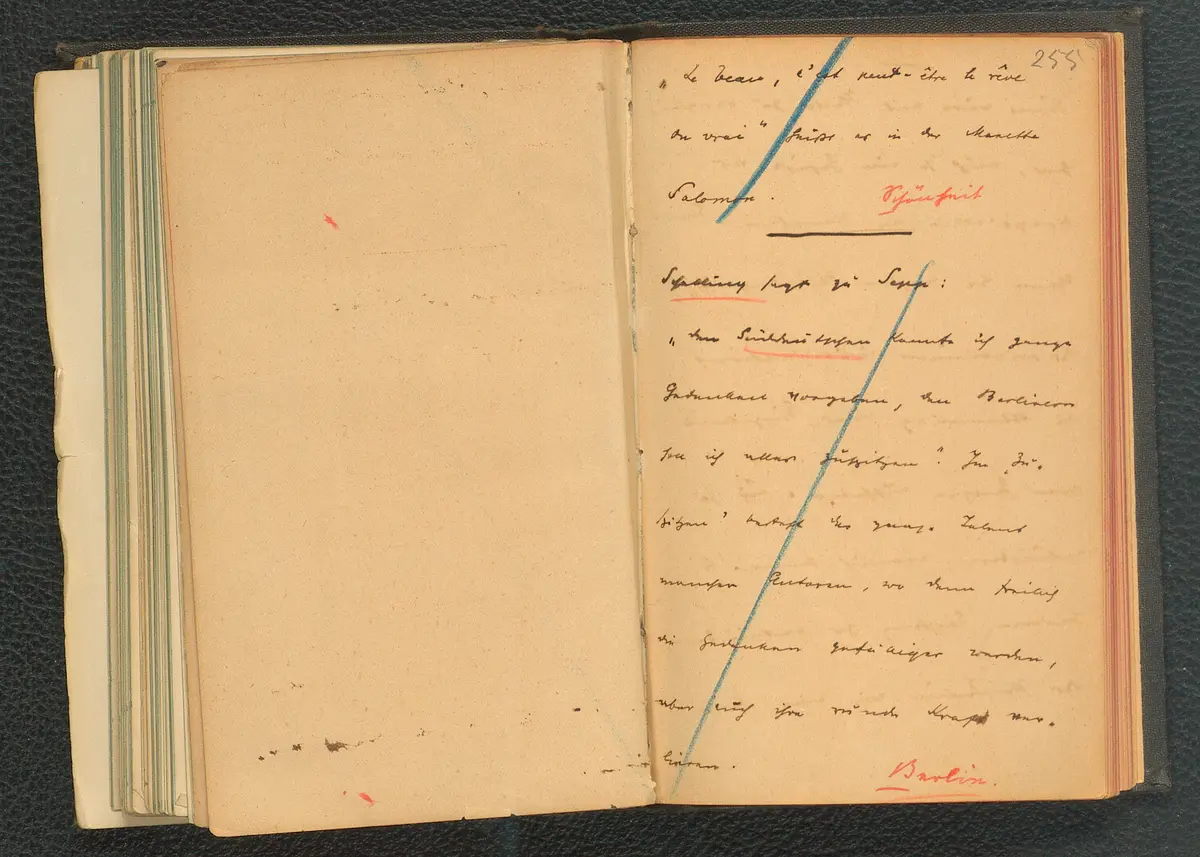 255
„Le beau, c'est peut-être le rêve
du vrai“ heißt es in der Manette
Salomon.
Schönheit
Schelling sagt zu Sepp:
„den Süddeutschen konnte ich ganze
Gedanken vorgeben, den Berlinern
soll ich alles zuspitzen“. Im „Zu-
spitzen“ besteht das ganze Talent
mancher Autoren, wo dann freilich
die Gedanken gefälliger werden,
aber auch ihre runde Kraft ver-
lieren.
Berlin.